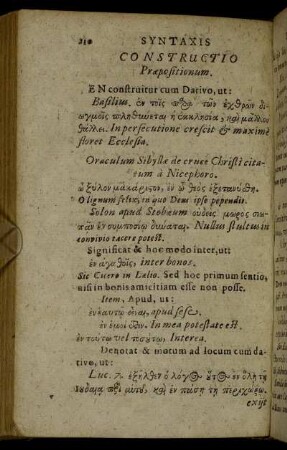 210 SYNTAXIS
CONSTRUCTIO
Præpositionum.
EN construitur cum Dativo, ut:
Basilius. ἐν τοῖς τῶν ἐχθρῶν δι-
ωγμοῖς πληθύνεται ἡ ἐκκλησία, καὶ μᾶλλον
θάλλει. In persecutione crescit & maximè
floret Ecclesia.
Oraculum Sibyllæ de cruce Christi cita-
tum à Nicephoro.
ὦ ξύλον μακάριστον, ἐν ᾧ θεὸς ἐξετανύσθη.
O lignum felix, in quo Deus ipse pependit.
Solon apud Stobæum οὐδεὶς μωρὸς σιω-
πᾶν ἐν συμποσίῳ δύναται. Nullus stultus in
convivio tacere potest.
Significat & hoc modo inter, ut:
ἐν ἀγαθοῖς, inter bonos.
Sic Cicero in Lælio. Sed hoc primum sentio,
nisi in bonis amicitiam esse non posse.
Item, Apud, ut:
ἐν ἑαυτῷ εἶναι, apud se esse.
ἐν ἐμοί ἐστιν. In mea potestate est.
ἐν τούτῳ vel τοσούτῳ. Interea.
Denotat & motum ad locum cum da-
tivo, ut:
Luc. 7. ἐξῆλθεν ὁ λόγος οὗτος ἐν ὅλῃ τῇ
Ἰουδαίᾳ περὶ αὐτοῦ, καὶ ἐν πάσῃ τῇ περιχώρῳ.
exijt